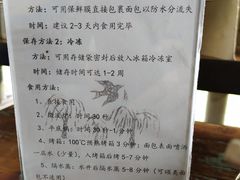 方法：可用保鲜膜直接包裹面包以防水分流失
时间：建议2-3天内食用完毕
保存方法2：冷冻
方法：可用存储袋密封后放入冰箱冷冻室
时间：储存时间可达1-2周
食用方法：
1、直接食用
2、微波炉：时间30秒
3、平底锅：时间30秒-1分钟
4、烤箱：100℃预热烤箱3分钟，面包表面喷洒
一点水（少量），入烤箱后烤5-7分钟
5、隔水蒸：水开后隔水蒸5-8分钟（可